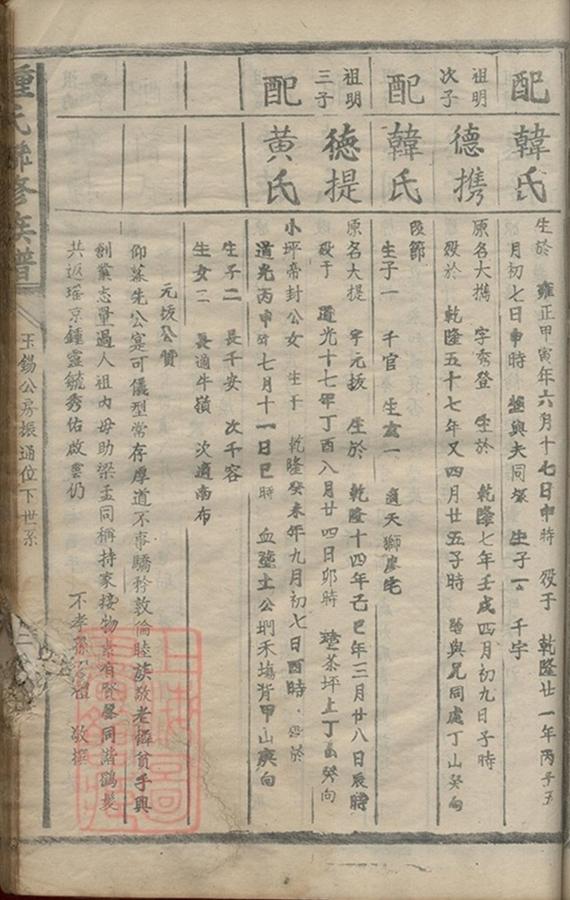 配 韓氏
生於 雍正甲寅年六月十七日申時 歿于 乾隆廿一年丙子五
月初七日申時 與夫同 生子一 千宇
祖明
次子
德攜
原名大攜 字秀登 生於 乾隆七年壬戌四月初九日子時
歿於 乾隆五十七年又四月廿五子時 與兄同處丁山癸向
配 韓氏
生子一 千官 生女一 適天獅廖宅
祖明
三子
德提
原名大提 字元拔 生於 乾隆十四年己巳年三月廿八日辰時
歿于 道光十七年丁酉八月廿四日卯時 茶坪上丁山癸向
配 黃氏
小坪帝封公女 生于 乾隆癸未年九月初七日酉時 歿於
道光丙申年七月十一日巳時 土公坰禾塢背甲山庚向
生子二 長千安 次千容
生女二 長適牛嶺 次適南布
元拔公贊
仰慕先公寔可儀型常存厚道不事驕矜敦倫睦族敬老憐貧手興
創業志量過人祖內母助梁孟同稱持家接物素有賢聲同諧鶴髮
共返瑤京鍾靈毓秀佑啟雲仍 不孝孫 敬撰
鍾氏聯修族譜
玉錫公房振通位下世系